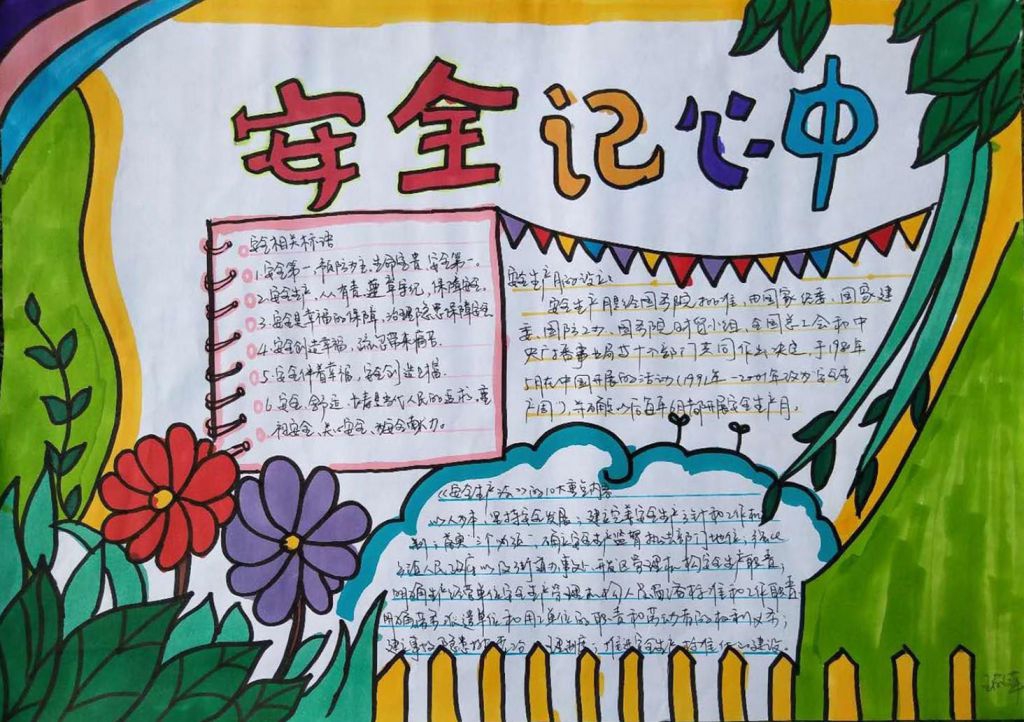 安全记心中
安全相关标语
1.安全第一,预防为主,生命宝贵,安全第一。
2.安全生产,人人有责,遵章守纪,保障安全。
3.安全是幸福的保障,治理隐患保障安全
4.安全创造幸福,疏忽带来痛苦.
5.安全伴着幸福,安全创造幸福.
6.安全、舒适、长寿是当代人民的追求,重
视安全、关心安全、为安全献力。
安全生产月的设立:
安全生产月是经国务院批准,由国家经委、国家建
委、国防工办、国务院财贸小组、全国总工会和中
央广播事业局等十个部门共同作出决定,于1980年
5月在中国开展的活动(1991年-2001年改为安全生
产周),并确定以后每年6月都开展安全生产月。
《安全生产法》的10大重点内容
以人为本,坚持安全发展;建立完善安全生产方针和工作机
制;落实“三个必须”,确立安全生产监管执法部门地位;强化
乡镇人民政府以及街道办事处、开发区管理机构安全生产职责;
明确生产经营单位安全生产管理机构、人员
明确劳务派遣单位和用工单位的职责和劳动者的权利义务;
建立事故隐患